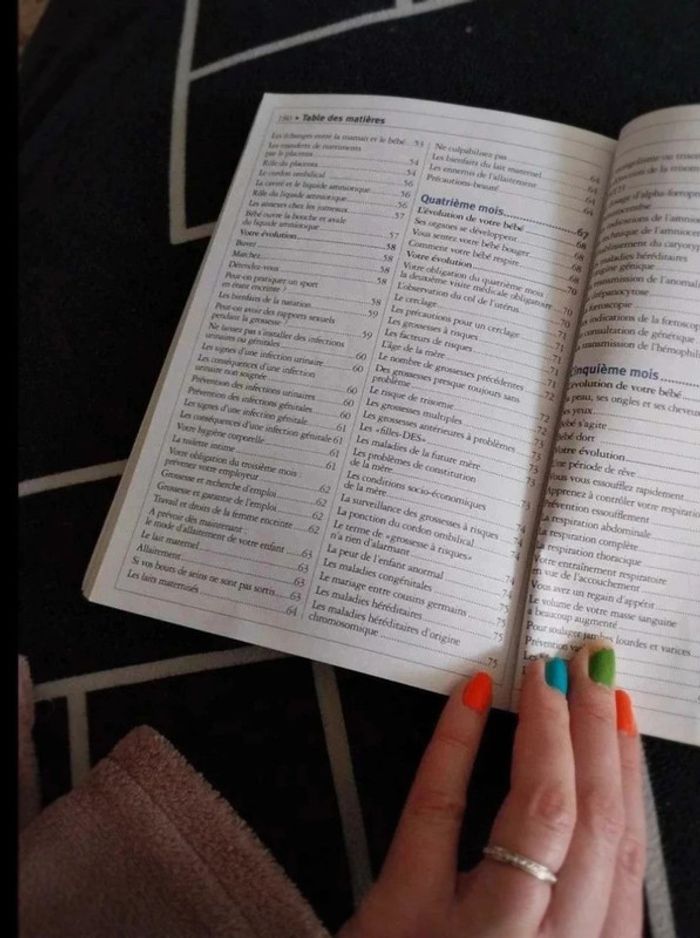 180 • Table des matières
Les échanges entre la maman et le bébé 53
Les transferts de nutriments
par le placenta 54
Rôle du placenta 54
Le cordon ombilical 56
La cavité et le liquide amniotique 56
Rôle du liquide amniotique 56
Les annexes chez les jumeaux 57
Bébé ouvre la bouche et avale
du liquide amniotique 57
Votre évolution 58
Buvez 58
Marchez 58
Détendez-vous 58
Peut-on pratiquer un sport
en étant enceinte ? 58
Les bienfaits de la natation 59
Peut-on avoir des rapports sexuels
pendant la grossesse ? 59
Ne laissez pas s'installer des infections
urinaires ou génitales 60
Les signes d'une infection urinaire 60
Les conséquences d'une infection
urinaire non soignée 60
Prévention des infections urinaires 60
Prévention des infections génitales 60
Les signes d'une infection génitale 61
Les conséquences d'une infection génitale 61
Votre hygiène corporelle 61
La toilette intime 61
Votre obligation du troisième mois :
prévenez votre employeur 62
Grossesse et recherche d'emploi 62
Grossesse et garantie de l'emploi 62
Travail et droits de la femme enceinte 62
A prévoir dès maintenant :
le mode d'allaitement de votre enfant 63
Le lait maternel 63
Allaitement 63
Si vos bouts de seins ne sont pas sortis 63
Les laits maternisés 64
Ne culpabilisez pas 64
Les bienfaits du lait maternel 64
Les ennemis de l'allaitement 64
Précautions-beauté 64
Quatrième mois 67
L'évolution de votre bébé 67
Ses organes se développent 68
Vous sentez votre bébé bouger 68
Comment votre bébé respire 68
Votre évolution 68
Votre obligation du quatrième mois :
la deuxième visite médicale obligatoire 70
L'observation du col de l'utérus 70
Le cerclage 70
Les précautions pour un cerclage 71
Les grossesses à risques 71
Les facteurs de risques 71
L'âge de la mère 71
Le nombre de grossesses précédentes 71
Des grossesses presque toujours sans
problème 72
Le risque de trisomie 72
Les grossesses multiples 72
Les grossesses antérieures à problèmes 73
Les «filles-DES» 73
Les maladies de la future mère 73
Les problèmes de constitution
de la mère 73
Les conditions socio-économiques
de la mère 73
La surveillance des grossesses à risques 74
La ponction du cordon ombilical 74
Le terme de «grossesse à risques»
n'a rien d'alarmant 74
La peur de l'enfant anormal 74
Les maladies congénitales 74
Le mariage entre cousins germains 75
Les maladies héréditaires 75
Les maladies héréditaires d'origine
chromosomique 75
usage d'alpha-foetopro
indications de l'amnioc
technique de l'amniocen
blissement du caryoty
maladies héréditaires
origine génique
transmission de l'anomali
drépanocytose
foetoscopie
indications de la foetosco
consultation de génétique
transmission de l'hémophili
Cinquième mois
L'évolution de votre bébé
a peau, ses ongles et ses cheve
es yeux
bébé s'agite
Bébé dort
Votre évolution
Une période de rêve
Vous vous essoufflez rapidement
Apprenez à contrôler votre respiratio
Prévention essoufflement
La respiration abdominale
La respiration complète
La respiration thoracique
Votre entraînement respiratoire
en vue de l'accouchement
Vous avez un regain d'appétit
Le volume de votre masse sanguine
a beaucoup augmenté
Pour soulager jambes lourdes et varices
Prévention va
Les